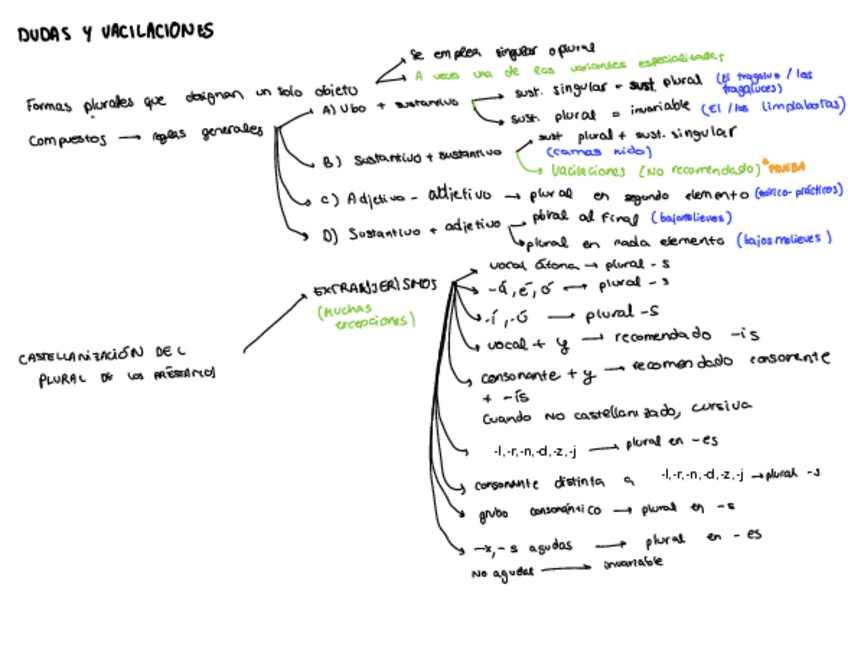 DUDAS Y VACILACIONES
Formas plurales que designan un solo objeto
Se emplea singular o plural
A veces una de las variantes especializadas
Compuestos → reglas generales
A) Vbo + sustantivo
sust. singular - sust. plural (El tragaluz / los tragaluces)
sust. plural = invariable (El / los limpiabotas)
B) Sustantivo + sustantivo
sust plural + sust. singular
(camas nido)
Vacilaciones (No recomendado) * PRUEBA
C) Adjetivo - adjetivo → plural en segundo elemento (teórico-prácticos)
D) Sustantivo + adjetivo
plural al final (bajorrelieves)
plural en cada elemento (bajos relieves)
CASTELLANIZACIÓN DEL
PLURAL DE LOS PRÉSTAMOS
EXTRANJERISMOS
(Muchas
excepciones)
vocal átona → plural -s
-á, é, ó → plural -s
-í, -ú → plural -s
vocal + y → recomendado -is
consonante + y → recomendado consonante
+ -is
Cuando NO castellanizado, cursiva
-l,-r,-n,-d,-z,-j → plural en -es
consonante distinta a -l,-r,-n,-d,-z,-j → plural -s
grupo consonántico → plural en -s
-x, -s agudas → plural en -es
No agudas → invariable